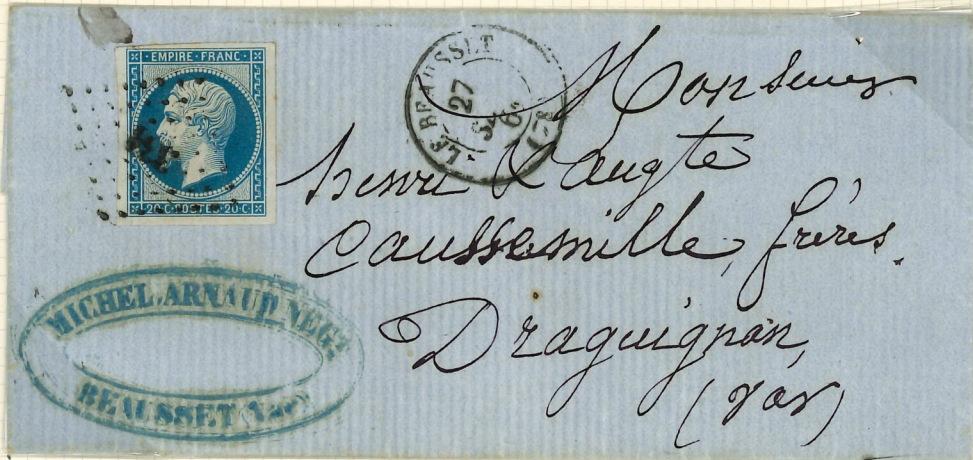 EMPIRE · FRANC ·
20 · C · POSTES · 20 · C ·
LE BEAUSSET
27
Monsieur
henri & augte
Caussemille, frères.
Draguignan,
(var)
MICHEL ARNAUD NEGT
BEAUSSET (Var)